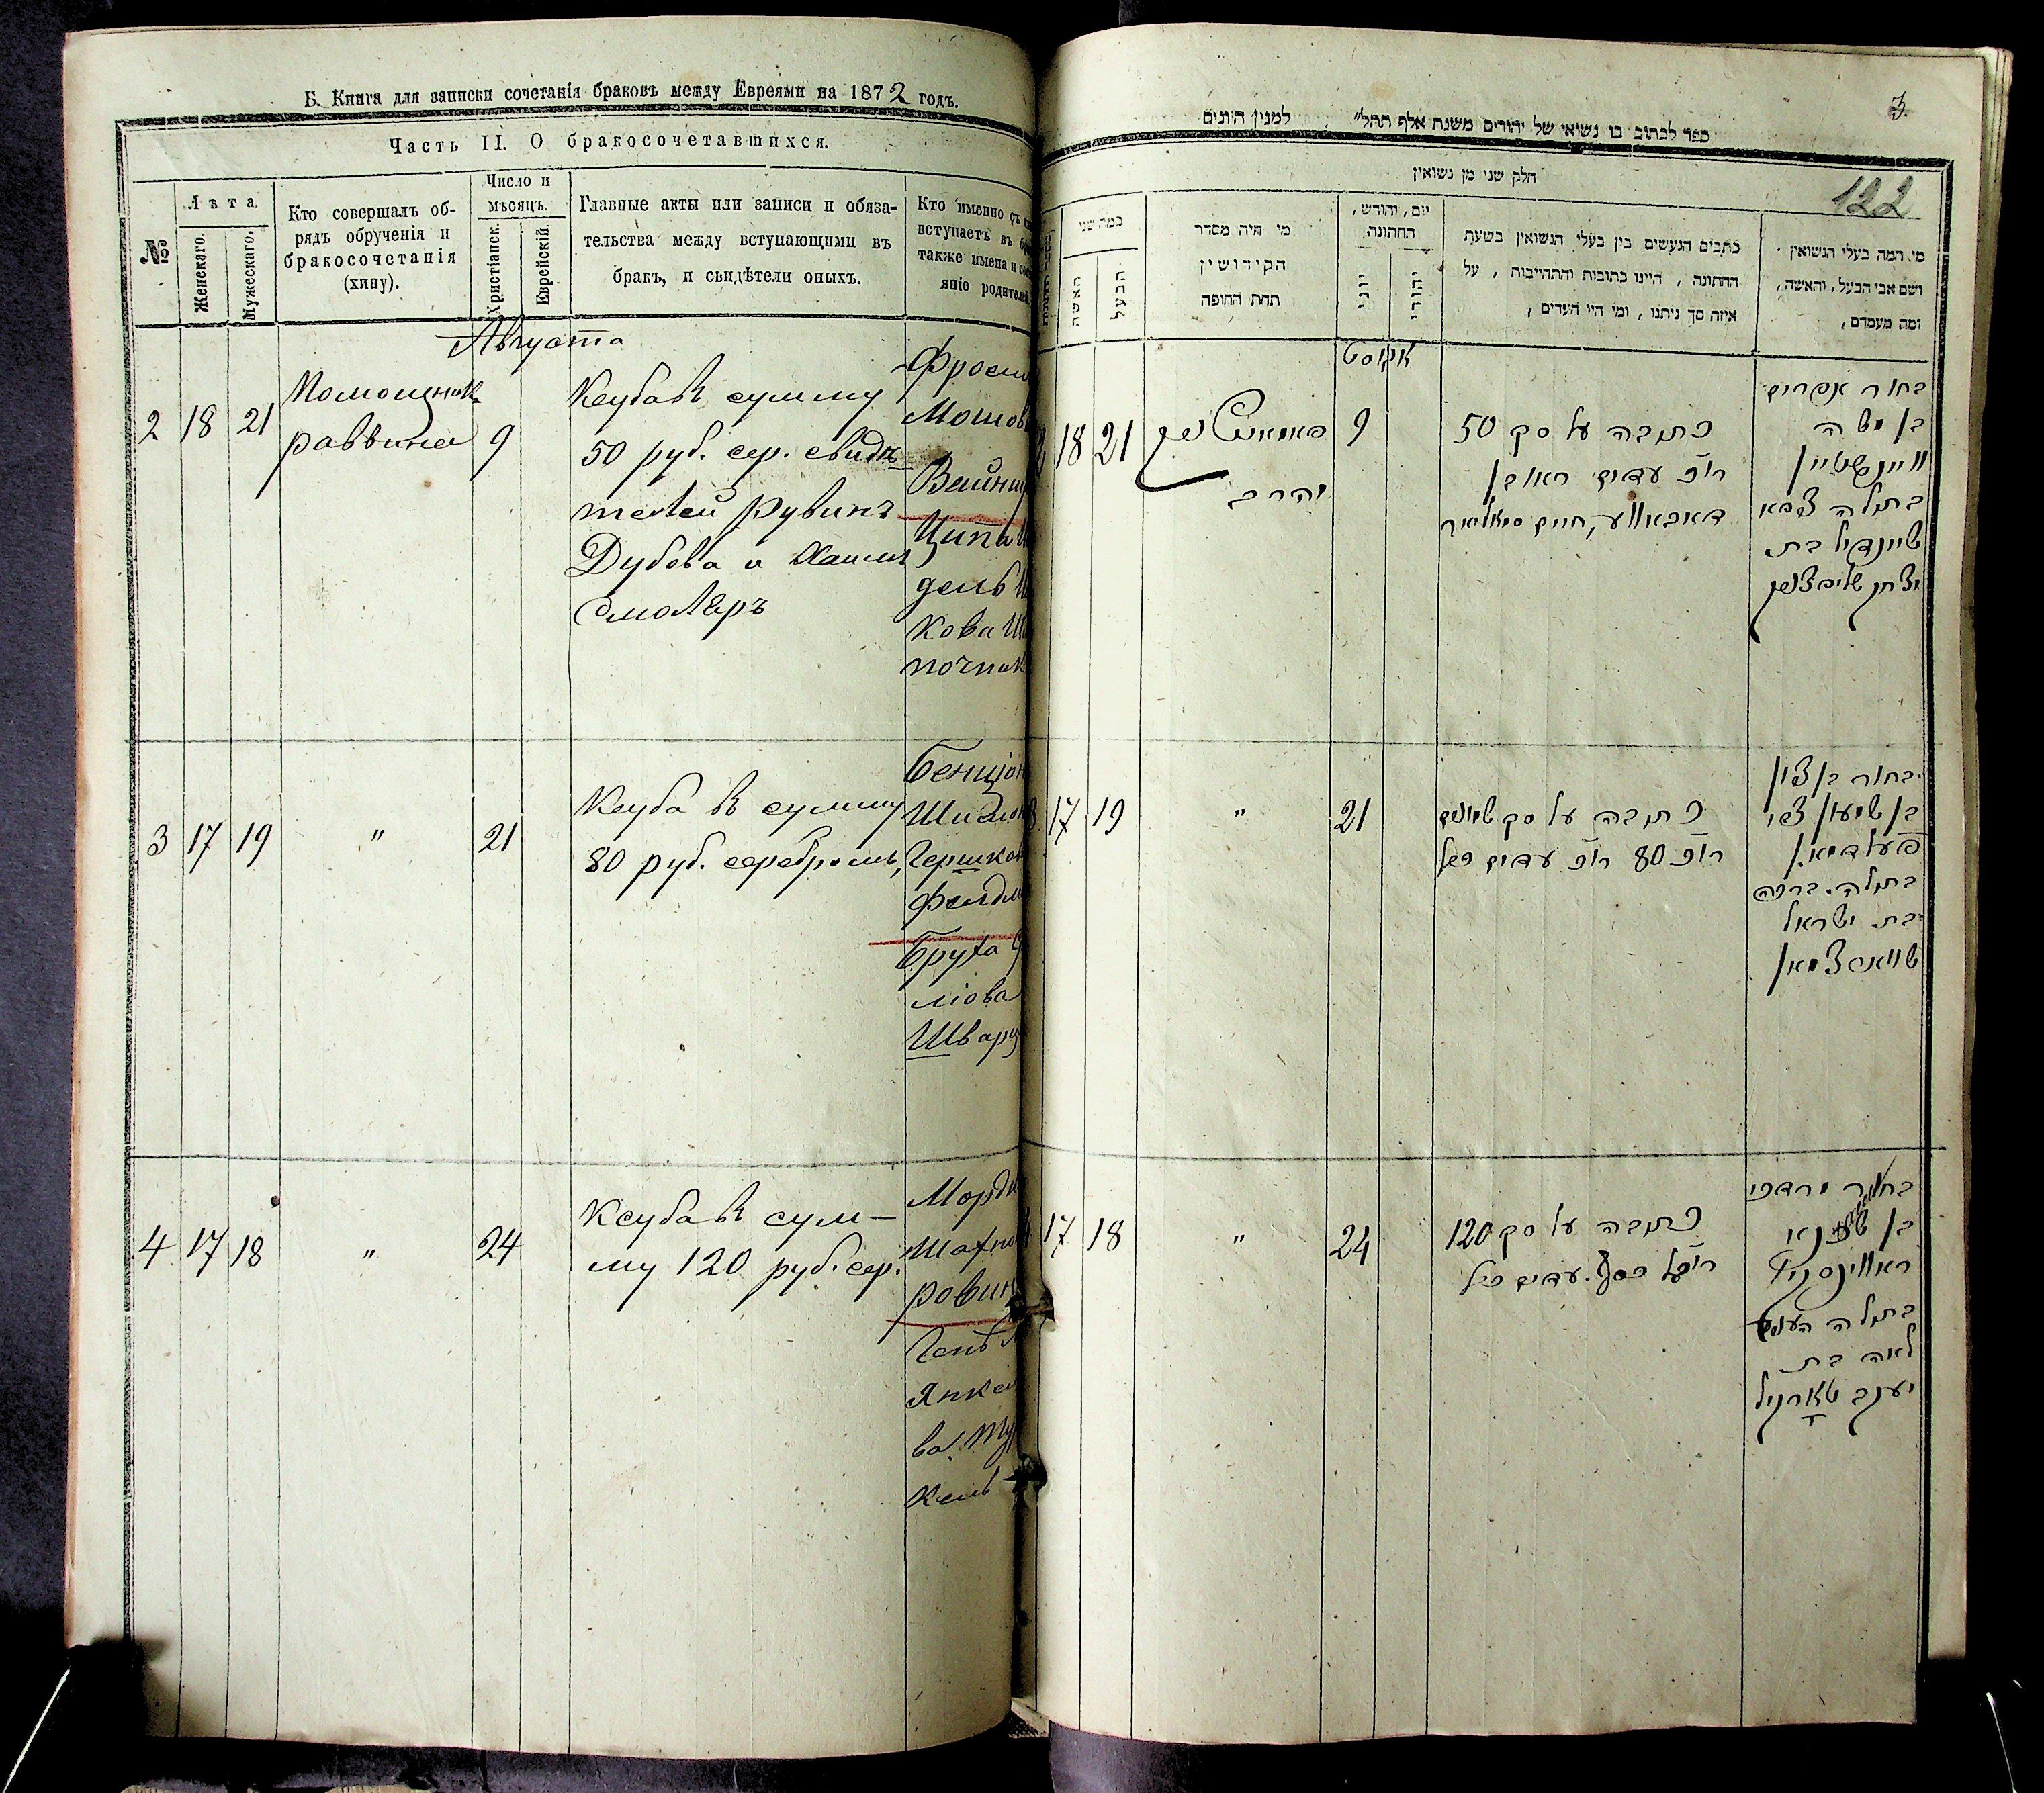 Б. Книга для записки сочетанія браковъ между Евреями на 1872 годъ.
Часть II. О бракосочетавшихся.
№
Лѣта.
Женскаго.
Мужескаго.
Кто совершалъ об-
рядъ обрученія и
бракосочетанія
(хипу).
Число и
мѣсяцъ.
Христіанск.
Еврейскій.
Главные акты или записи и обяза-
тельства между вступающими въ
бракъ, и свидѣтели оныхъ.
Кто именно съ
вступаетъ въ
также имена и
яніе родителей
Августа
2 18 21
Помощник
раввина
9
Ксуба въ сумму
50 руб. сер. свидѣ
телей Рувинъ
Дубова и Хаимъ
Смоляръ
Мошов
Ципа
дель
кова
3 17 19 " 21
Ксуба въ сумму
80 руб. серебромъ,
Бенціон
Гершков
Фельдм
Бруха
Шварц
4 17 18 " 24
Ксуба въ сум-
му 120 руб. сер.
Мордк
ровин
Янкел
ва
кель
3.
ספר לכתוב בו נשואי של יהודים משנת אלף תתל״ למנין היונים
122
חלק שני מן נשואין
כמה שני
האשה
הבעל
מי היה מסדר
הקידושין
תחת החופה
יום, וחודש,
החתונה
יוני
יהודי
כתבים הנעשים בין בעלי הנשואין בשעת
החתונה, היינו כתובות והתחייבות, על
איזה סך ניתנו, ומי היו העדים,
מי המה בעלי הנשואין
ושם אבי הבעל, והאשה,
ומה מעמדם,
אוגוסט
18 21
הרב
9
כתובה על סך 50
רו״כ עדים ראובן
חיים סמאליאר
בחור אפרים
בן משה
וויינשטיין
בתולה ציפא
שיינדיל בת
יצחק
17 19 " 21
כתובה על סך שמונים
רו״כ 80 רו״כ עדים הנ״ל
בחור בן ציון
בן שמעון צבי
פעלדמאן
בתולה ברכה
בת ישראל
שווארצמאן
17 18 " 24
כתובה על סך 120
רו״כ כסף עדים הנ״ל
בחור מרדכי
בן שכנא
בתולה
לאה בת
יעקב